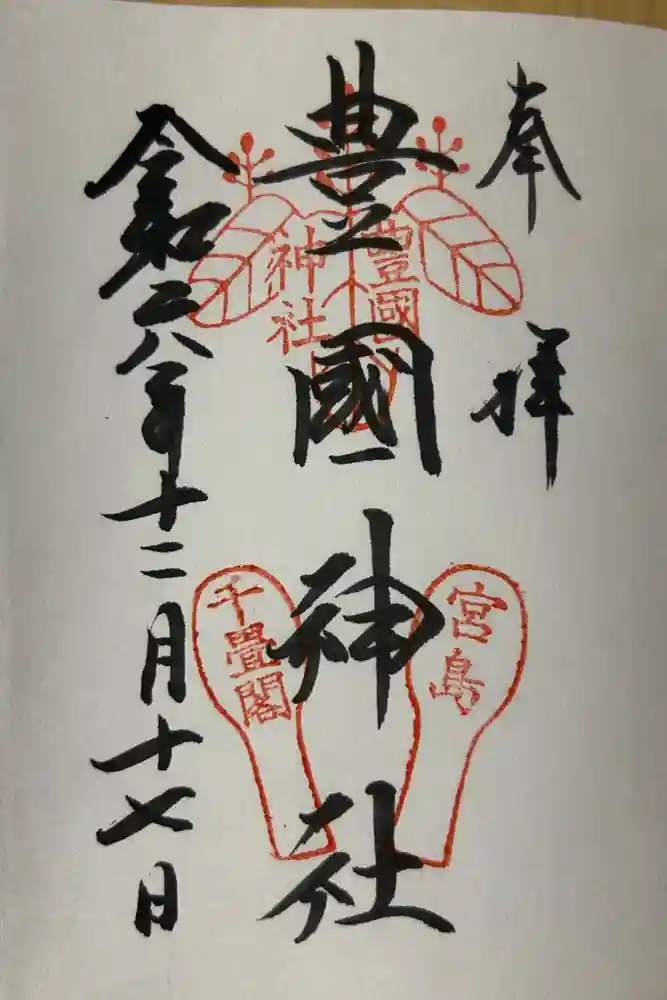 奉拝
豊國神社
令和年十二月十七日
豊國
神社
宮島
千畳閣